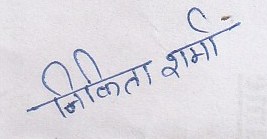 निकिता शर्मा